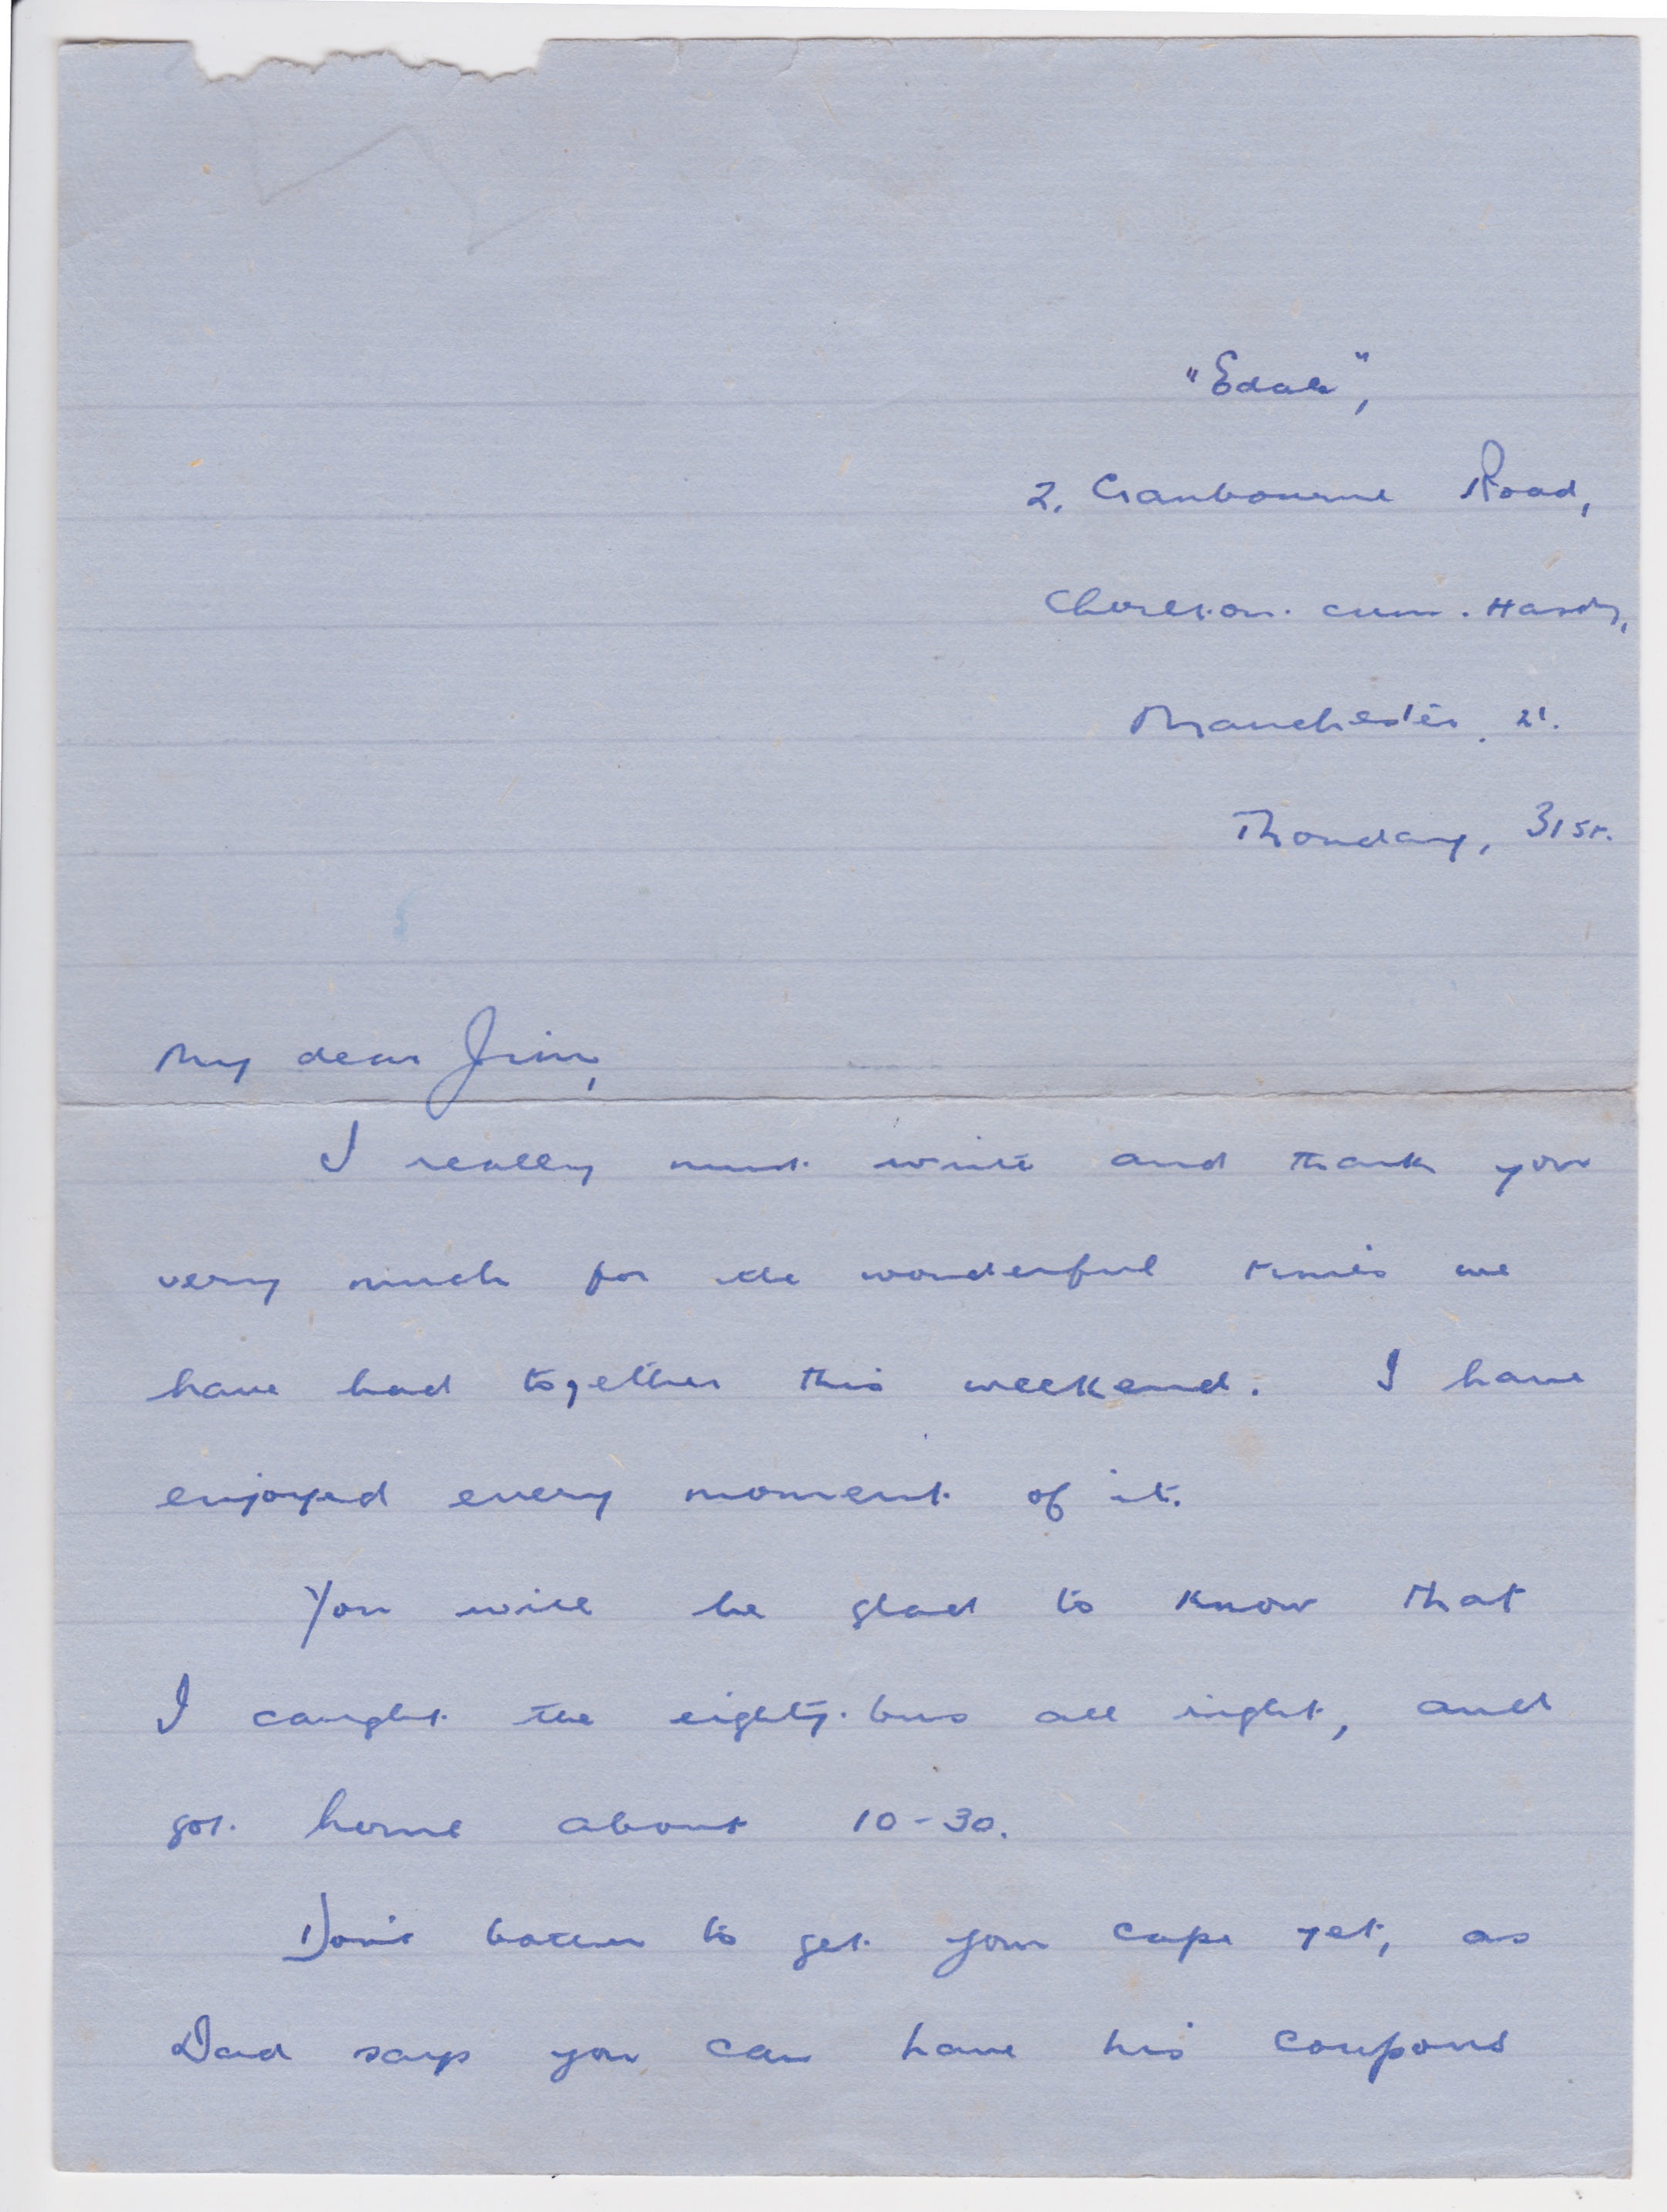 "Edale",
2, Cranbourne Road,
Chorlton. cum. Hardy,
Manchester. 21.
Monday, 31st.
My dear Jim,
I really must write and thank you
very much for the wonderful times we
have had together this weekend. I have
enjoyed every moment of it.
You will be glad to know that
I caught the eighty. bus all right, and
got home about 10-30.
Don't bother to get your cape yet, as
Dad says you can have his coupons